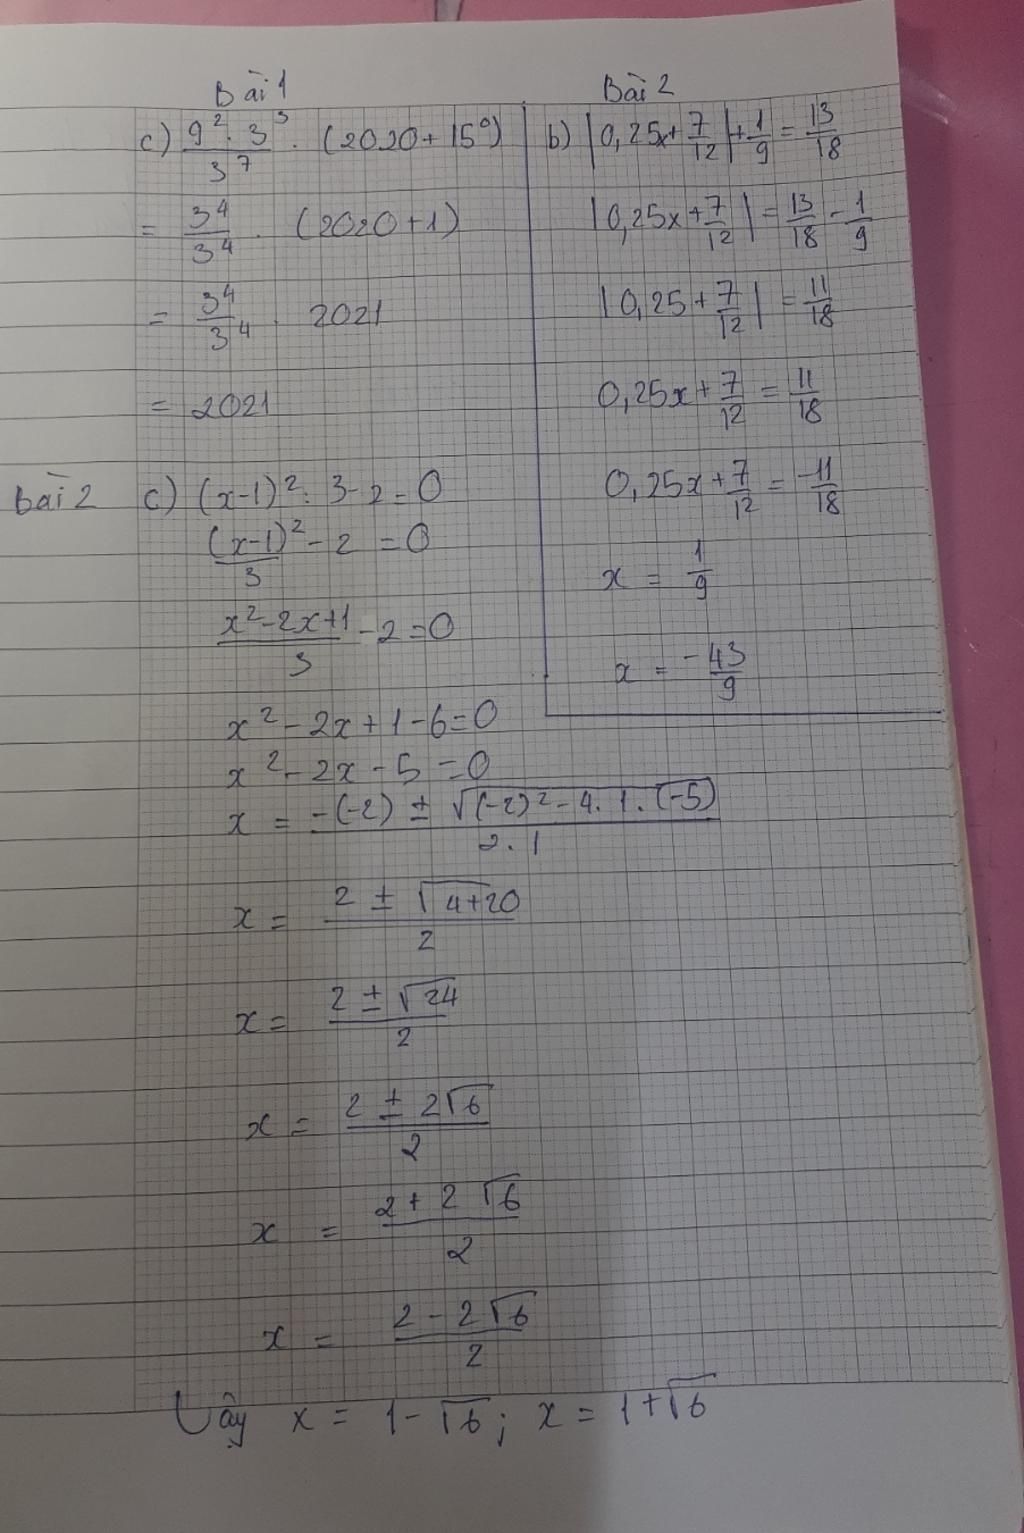 Bài 1
c) \frac{9^2 . 3^3}{3^7} . (2020 + 15^0)
= \frac{3^4}{3^4} . (2020 + 1)
= \frac{3^4}{3^4} . 2021
= 2021
Bài 2
b) |0,25x + \frac{7}{12}| + \frac{1}{9} = \frac{13}{18}
|0,25x + \frac{7}{12}| = \frac{13}{18} - \frac{1}{9}
|0,25 + \frac{7}{12}| = \frac{11}{18}
0,25x + \frac{7}{12} = \frac{11}{18}
0,25x + \frac{7}{12} = \frac{-11}{18}
x = \frac{1}{9}
x = -\frac{43}{9}
Bài 2 c) (x-1)^2 : 3 - 2 = 0
\frac{(x-1)^2}{3} - 2 = 0
\frac{x^2 - 2x + 1}{3} - 2 = 0
x^2 - 2x + 1 - 6 = 0
x^2 - 2x - 5 = 0
x = \frac{-(-2) ± \sqrt{(-2)^2 - 4 . 1 . (-5)}}{2 . 1}
x = \frac{2 ± \sqrt{4+20}}{2}
x = \frac{2 ± \sqrt{24}}{2}
x = \frac{2 ± 2\sqrt{6}}{2}
x = \frac{2 + 2\sqrt{6}}{2}
x = \frac{2 - 2\sqrt{6}}{2}
Vậy x = 1 - \sqrt{6} ; x = 1 + \sqrt{6}